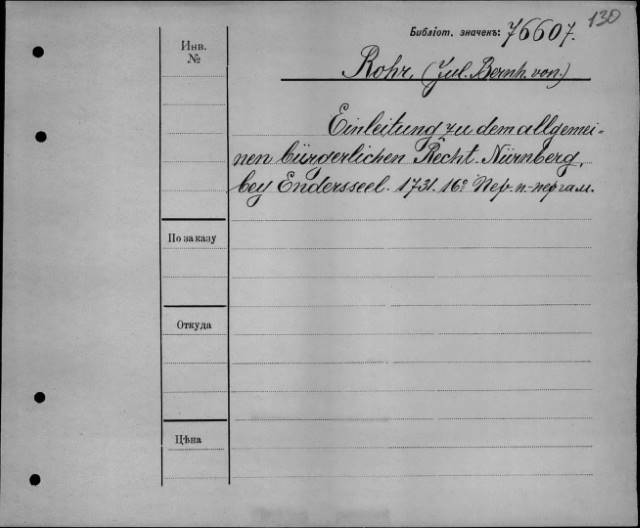 130
Библіот. значекъ: 76607.
Инв.
№
Rohr, (Jul. Bernh. von.)
Einleitung zu dem allgemei-
nen bürgerlichen Recht. Nürnberg,
bey Endersseel. 1731. 16º Пер. п.-пергам.
По заказу
Откуда
Цѣна